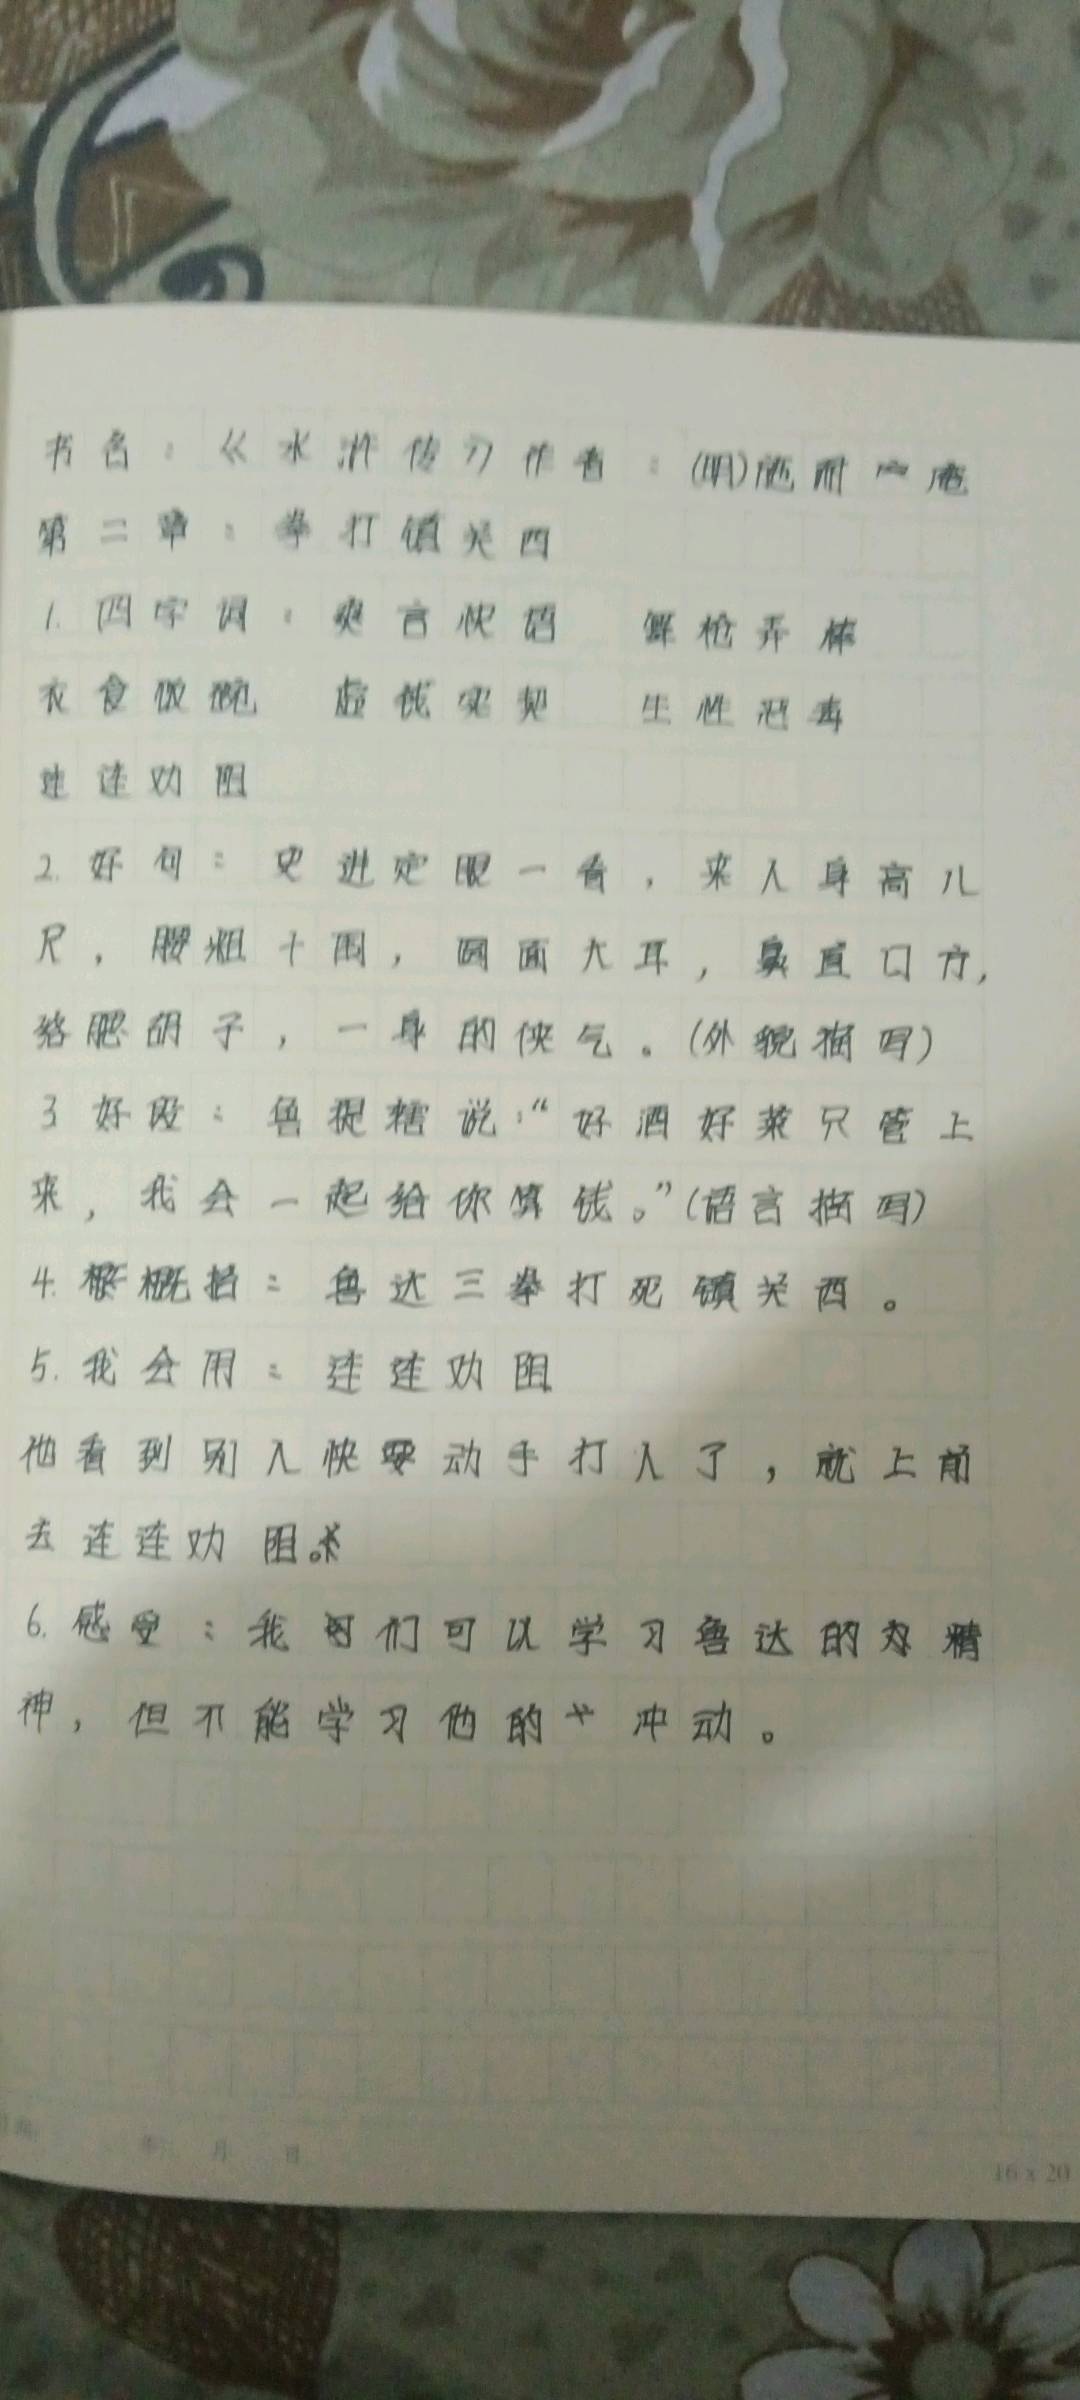 书名：《水浒传》作者：(明)施耐庵
第二章：拳打镇关西
1.四字词：爽言快语 舞枪弄棒
衣食饭碗 虚钱实契 生性泼毒
连连劝阻
2.好句：史进定眼一看，来人身高八
尺，腰粗十围，圆面大耳，鼻直口方，
络腮胡子，一身的侠气。(外貌描写)
3好段：鲁提辖说：“好酒好菜只管上
来，我会一起给你算钱。”(语言描写)
4.概括：鲁达三拳打死镇关西。
5.我会用：连连劝阻
他看到别人快要动手打人了，就上前
去连连劝阻。
6.感受：我们可以学习鲁达的精
神，但不能学习他的冲动。
年 月 日
16 x 20